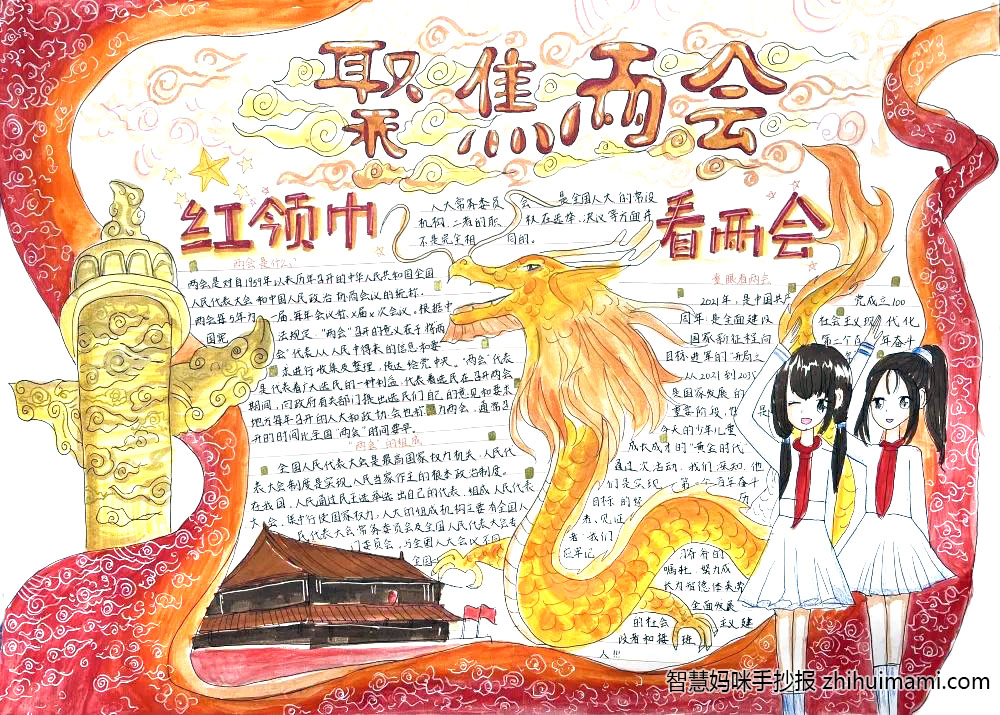 聚焦两会
红领巾
看两会
人大常务委员会 是全国人大的常设
机构,二者的职权在选举、决议等方面并
不是完全相同的。
两会是什么?
两会是对自1959年以来历年召开的中华人民共和国全国
人民代表大会和中国人民政治协商会议的统称。
两会每5年为一届,每年会议称x届x次会议。根据中
国宪法规定:“两会”召开的意义在于将两
会”代表从人民中得来的信息和要
求进行收集及整理,传达给党中央。“两会”代表
是代表着广大选民的一种利益,代表着选民在召开两会
期间,向政府有关部门提出选民们自己的意见和要求。
地方每年召开的人大和政协会也称为两会,通常召
开的时间比全国“两会”时间要早。
“两会”的组成
全国人民代表大会是最高国家权力机关,人民代
表大会制度是实现人民当家作主的根本政治制度。
在我国,人民通过民主选举选出自己的代表,组成人民代表
大会,集中行使国家权力。人大的组成机构主要有全国人
民代表大会常务委员会及全国人民代表大会专
门委员会。与全国人大会议不同
全国
童眼看两会
2021年,是中国共产 完成三100
周年,是全面建设 社会主义现代化
国家新征程向 第二个百年奋斗
目标进军的“开局之
从2021到2035
是国家发展的
重要阶段,
今天的少年儿童
成长成才的“黄金时代
通过次活动,我们深知,他
们是实现 第二个百年奋斗
目标的经 历
者、见证
者,我们
应牢记
爷爷的
嘱托,努力成
长为智德体美劳
全面发展
的社会 主义建
设者和接 班
人!!!
智慧妈咪手抄报 zhihuimami.com